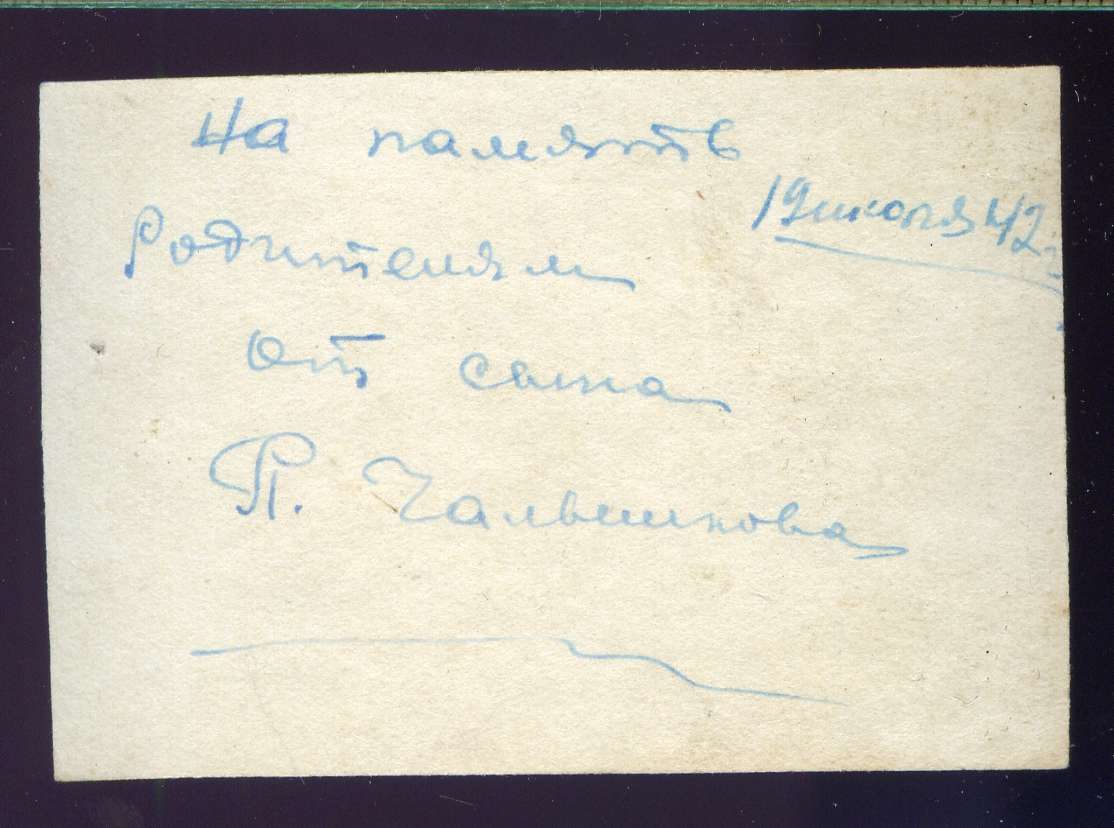 На память
19 июля 42 г.
Родителям
от сына
П. Чальшикова